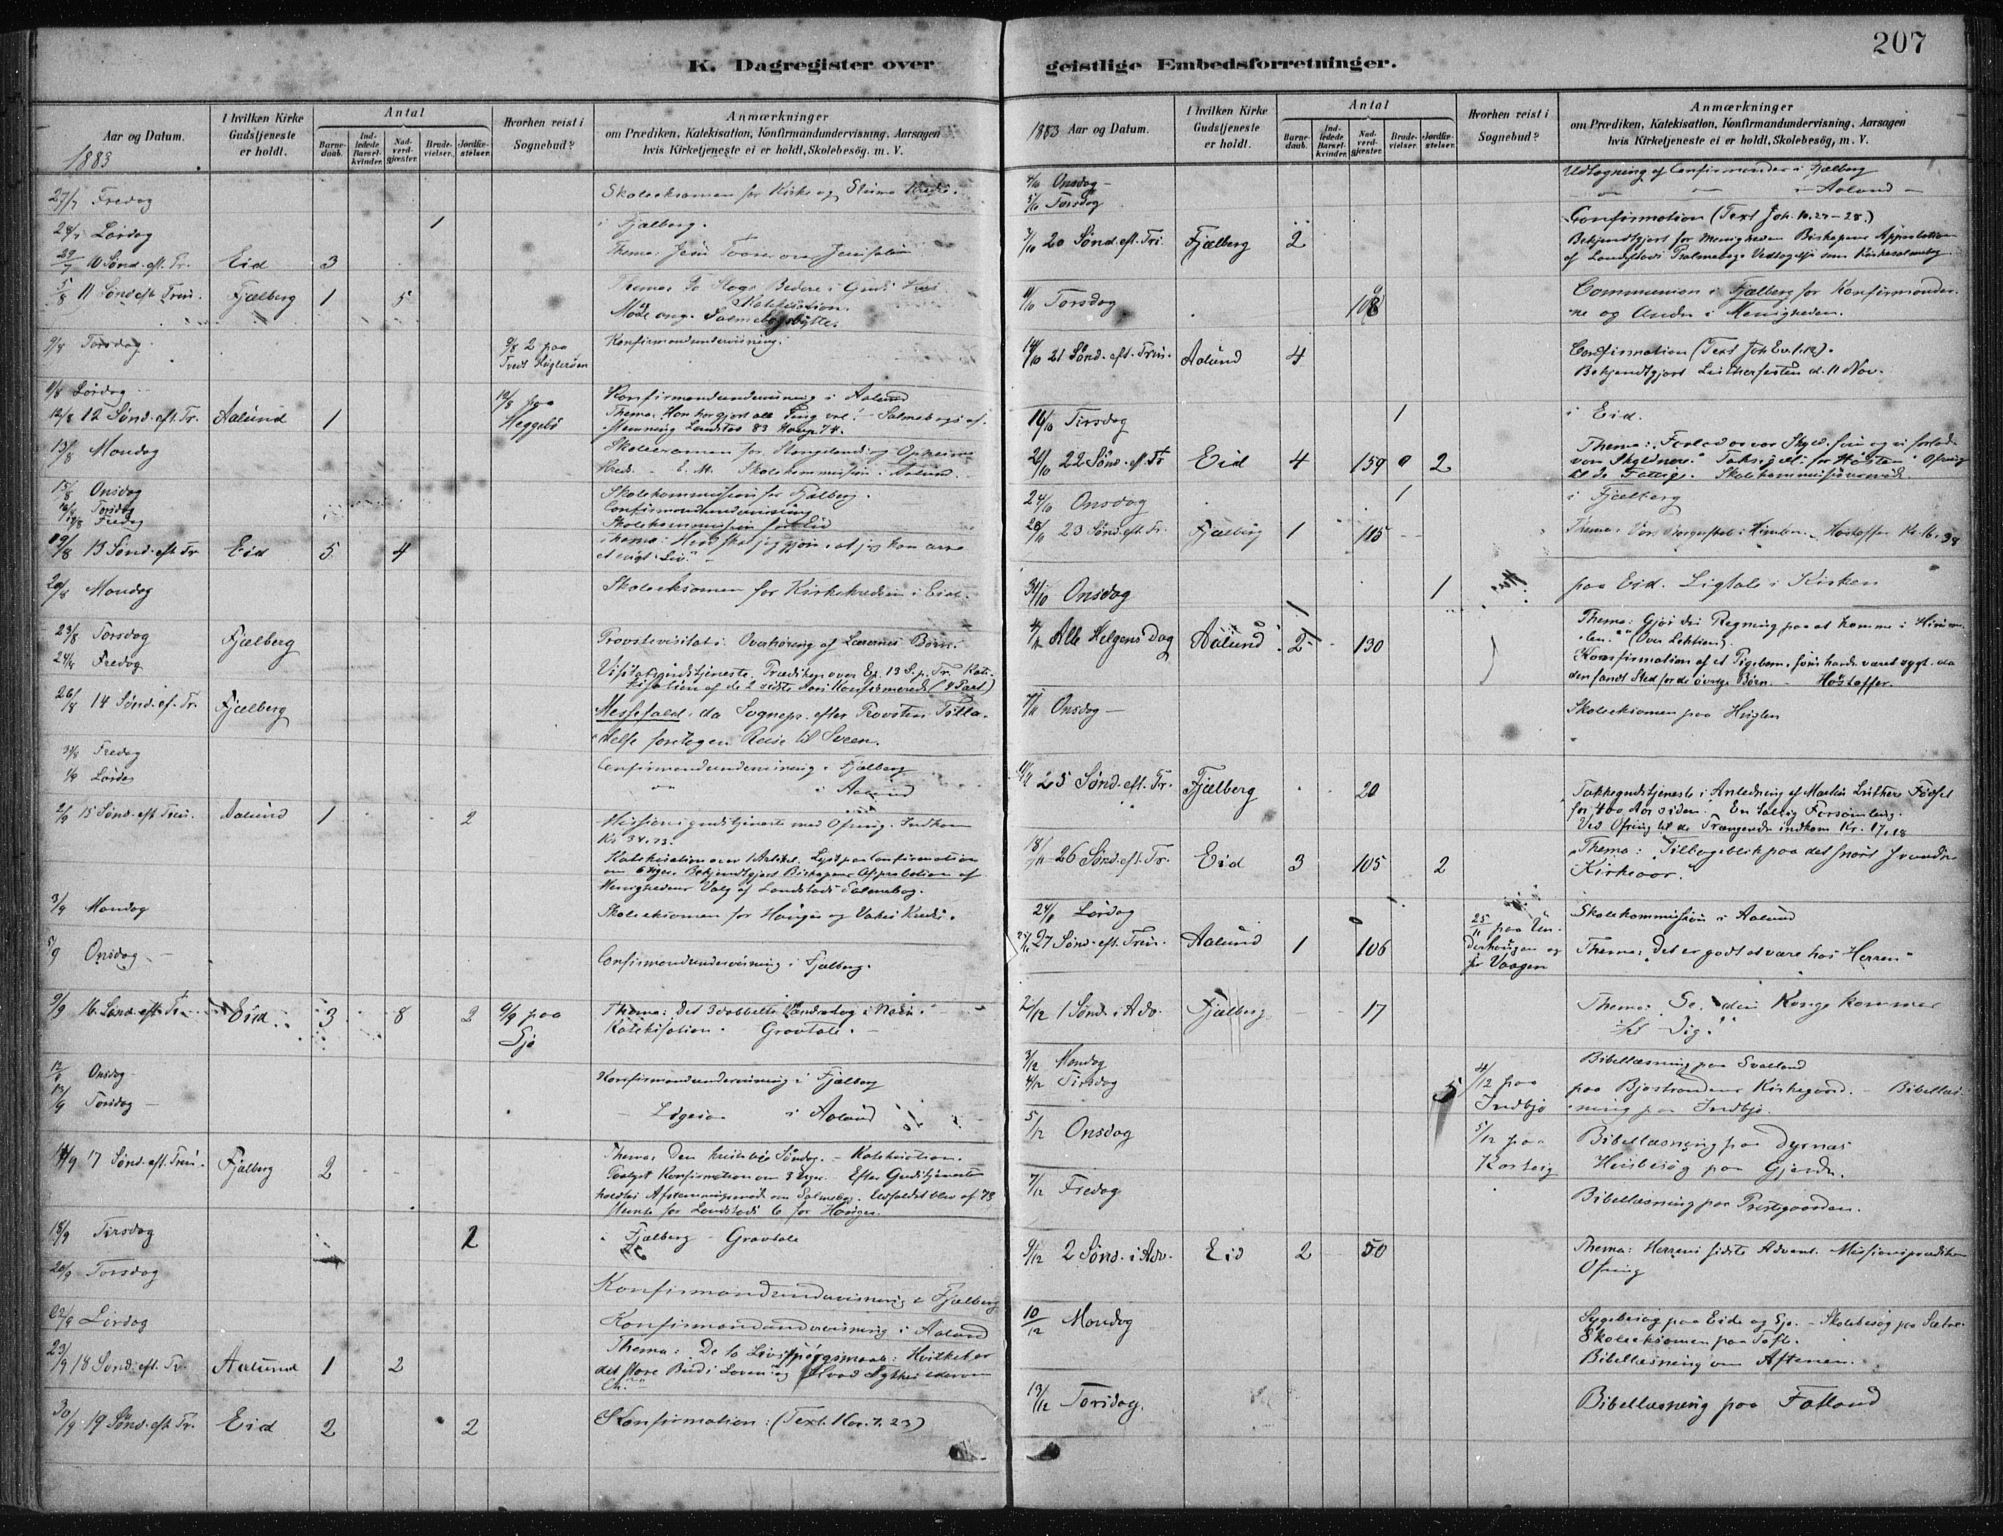 207
K. Dagregister over geistlige Embedsforretninger.
Aar og Datum.
I hvilken Kirke Gudstjeneste er holdt.
Antal
Barnedaab.
Indledede Barselkvinder.
Nadverdgjester.
Brudevielser.
Jordfæstelser.
Hvorhen reist i Sognebud?
Anmærkninger
om Prædiken, Katekisation, Konfirmandundervisning, Aarsagen
hvis Kirketjeneste ei er holdt, Skolebesøg, m. V.
1883
27/7 Fredag Skoleeksamen for Kirke og
28/7 Lørdag 1 i Fjelberg.
29/7 10 Sønd. eft. Tr. Eid 3 Thema: Jesu Taarer over Jerusalem
5/8 11 Sønd. eft. Trin. Fjælberg 1 5 Thema: To Slags Bedere i Guds Hus
Katekisation.
Møde ang. Salmebogsbytte.
9/8 Torsdag 9/8 2 paa Konfirmandundervisning.
Tvedt
11/8 Lørdag Konfirmandundervisning i Aalund
12/8 12 Sønd. eft. Tr. Aalund 1 12/8 paa Heggebø Thema: Han har gjort alle Ting vel! - Salmebogsaf-
stemning Landstad 83 Hauge 74.
13/8 Mandag Skoleeksamen for Stangeland og Opheim
Kreds. - E. M. Skolekommission i Aalund.
15/8 Onsdag Skolekommission for Fjælberg.
16/8 Torsdag Confirmandundervisning
17/8 Fredag Skolekommission for Eid
19/8 13 Sønd. eft. Tr. Eid 5 4 Thema: Hvad skal jeg gjøre, at jeg kan arve
et evigt Liv"
20/8 Mandag Skoleeksamen for Kirkekredsen i Eid.
23/8 Torsdag Fjælberg Provstevisitats: Overhøring af Lærernes Børn.
24/8 Fredag Visitatsgudstjeneste. Prædiken over Ep. 13 S. p. Tr. Kate-
kisation af de 2 sidste Aars Konfirmerede
26/8 14 Sønd. eft. Tr. Fjælberg Messefald, da Sognepr. efter Provstens Tilla-
delse foretog en Reise til Sveen.
31/8 Fredag Confirmandundervisning i Fjælberg
1/9 Lørdag i Aalund
2/9 15 Sønd. eft. Trin. Aalund 1 2 Missionsgudstjeneste med Ofring. Indkom
Kr. 34.73.
Katekisation over 1 Artikel. Lyst paa Confirmation
om 6 Uger. Bekjendtgjort Biskopens Approbation af
Menighedens Valg af Landstads Salmebog.
3/9 Mandag Skoleeksamen for Hauge og Vakes Kreds.
5/9 Onsdag Confirmandundervisning i Fjælberg.
9/9 16 Sønd. eft. Tr. Eid 3 8 2 9/9 paa Ejø Thema: Det 3 dobbelte
Katekisation. Gravtale.
12/9 Onsdag Konfirmandundervisning i Fjælberg
13/9 Torsdag Ligesaa i Aalund
16/9 17 Sønd. eft. Trin. Fjælberg 2 Thema: Den kristelige Søndag. - Katekisation.
Tillyst Konfirmation om 3 Uger. Efter Gudstjenesten
holdtes Afstemningsmøde om Salmebog. Udfaldet blev af 73
Stemte for Landstads 6 for Hauges.
18/9 Tirsdag 2 i Fjælberg - Gravtale
20/9 Torsdag Konfirmandundervisning i Fjælberg
22/9 Lørdag Konfirmandundervisning i Aalund
23/9 18 Sønd. eft. Tr. Aalund 1 2 Thema: De to Livsspørgsmaal: Hvilket er
det store Bud i Loven? og Hvad tykkes eder om
Ch."
30/9 19 Sønd. eft. Tr. Eid 2 2 Konfirmation: (Text: 1 Kor. 7. 23)
1883 Aar og Datum.
I hvilken Kirke Gudstjeneste er holdt.
Antal
Barnedaab.
Indledede Barselkvinder.
Nadverdgjester.
Brudevielser.
Jordfæstelser.
Hvorhen reist i Sognebud?
Anmærkninger
om Prædiken, Katekisation, Konfirmandundervisning, Aarsagen
hvis Kirketjeneste ei er holdt, Skolebesøg, m. V.
4/10 Onsdag - Udtagning af Confirmander i Fjælberg
5/10 Torsdag - i Aalund -
7/10 20 Sønd. eft. Tri. Fjælberg 2 Confirmation (Text Joh. 10. 27-28.)
Bekjendtgjort for Menigheden Biskopens Approbation
af Landstads Psalmebogs Vedtagelse som Kirkesalmebog
11/10 Torsdag 108 Communion i Fjælberg for Konfirmander-
ne og Andre i Menigheden.
14/10 21 Sønd. eft. Trin. Aalund 4 Confirmation (Text Joh. Ev. 1. 12).
Bekjendtgjort Lutherfesten d. 11 Nov.
16/10 Tirsdag 1 i Eid.
21/10 22 Sønd. ef. Tr. Eid 4 159 0 2 Thema: "Forlad os vor Skyld, som og vi forlade
vore Skyldnere." Taksigelse for Høsten. Ofring
til de Fattige. Skolekommissionsmøde.
24/10 Onsdag 1 i Fjælberg
28/10 23 Sønd. eft. Tr. Fjælberg 1 115 Thema: Vor Borgerskab i Himlen. Høstoffer Kr. 16.98
31/10 Onsdag 1 paa Eid. Ligtale i Kirken
4/11 Alle Helgens Dag Aalund 2 130 Thema: Gjør du Regning paa at komme i Himme-
len." Over Lektien.
Konfirmation af et Pigebarn, som havde været sygt, da
den fandt Sted for de øvrige Børn. - Høstoffer.
7/11 Onsdag - Skoleeksamen paa Heiglen
11/11 25 Sønd. eft. Tr. Fjælberg 20 Takkegudstjeneste i Anledning af Martin Luthers Fødsel
for 400 Aar siden. En talrig Forsamling.
Ved Ofring til de Trængende indkom Kr. 17,18
18/11 26 Sønd. eft. Tr. Eid 3 105 2 Thema: Tilbageblik paa det snart svundne
Kirkeaar.
24/11 Lørdag Skolekommission i Aalund
25/11 27 Sønd. eft. Trin. Aalund 1 106 25/11 paa Un-
derhaugen og
Vaagen Thema: Det er godt at være hos Herren"
2/12 1 Sønd. i Adv. Fjælberg 17 Thema: Se, din Konge kommer
til Dig."
3/12 Mandag Bibellæsning paa Svalland
4/12 Tirsdag 5 4/12 paa Indbjo paa Bjostrandens Kirkegaard. - Bibellæs-
ning paa Indbjo.
5/12 Onsdag 5/12 paa Bibellæsning paa Dyrnæs
Husbesøg paa Gjerde.
7/12 Fredag Bibellæsning paa Prestegaarden.
9/12 2 Sønd. i Adv. Eid 2 50 Thema: Herrens sidste Advent. Missionsprædiken
Ofring
10/12 Mandag Sygebesøg paa Eide og Ejo. - Skolebesøg paa Sætre
Skoleeksamen paa Tofte.
Bibellæsning om Aftenen.
13/12 Torsdag. Bibellæsning paa Fatland